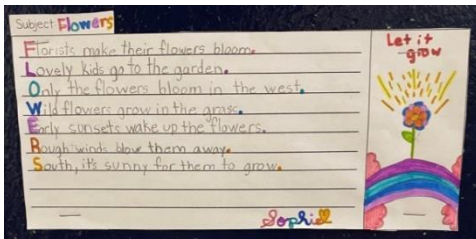 Subject Flowers
Florists make their flowers bloom.
Lovely kids go to the garden.
Only the flowers bloom in the west.
Wild flowers grow in the grass.
Early sunsets wake up the flowers.
Rough winds blow them away.
South, it's sunny for them to grow.
Sophie
Let it
grow